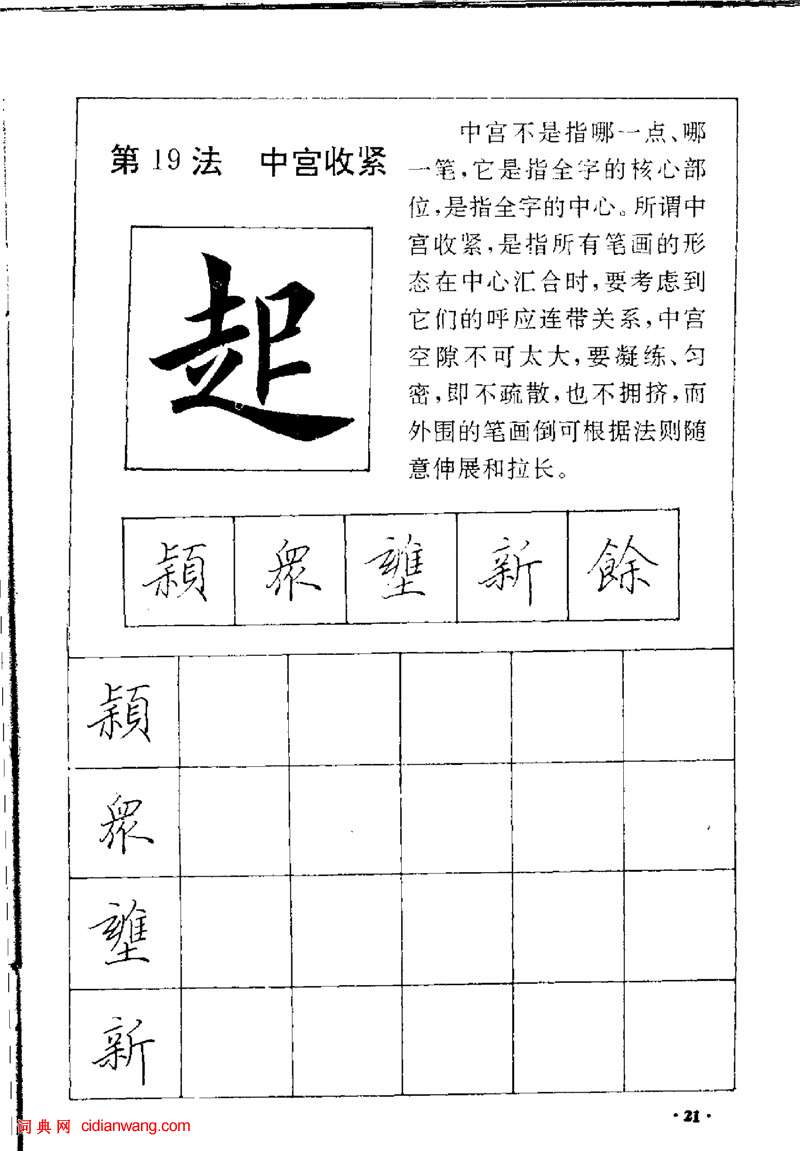 第19法 中宫收紧
中宫不是指哪一点、哪
一笔,它是指全字的核心部
位,是指全字的中心。所谓中
宫收紧,是指所有笔画的形
态在中心汇合时,要考虑到
它们的呼应连带关系,中宫
空隙不可太大,要凝练、匀
密,即不疏散,也不拥挤,而
外围的笔画倒可根据法则随
意伸展和拉长。
起
颖 眾 壅 新 餘
颖
眾
壅
新
·21·
词典网 cidianwang.com